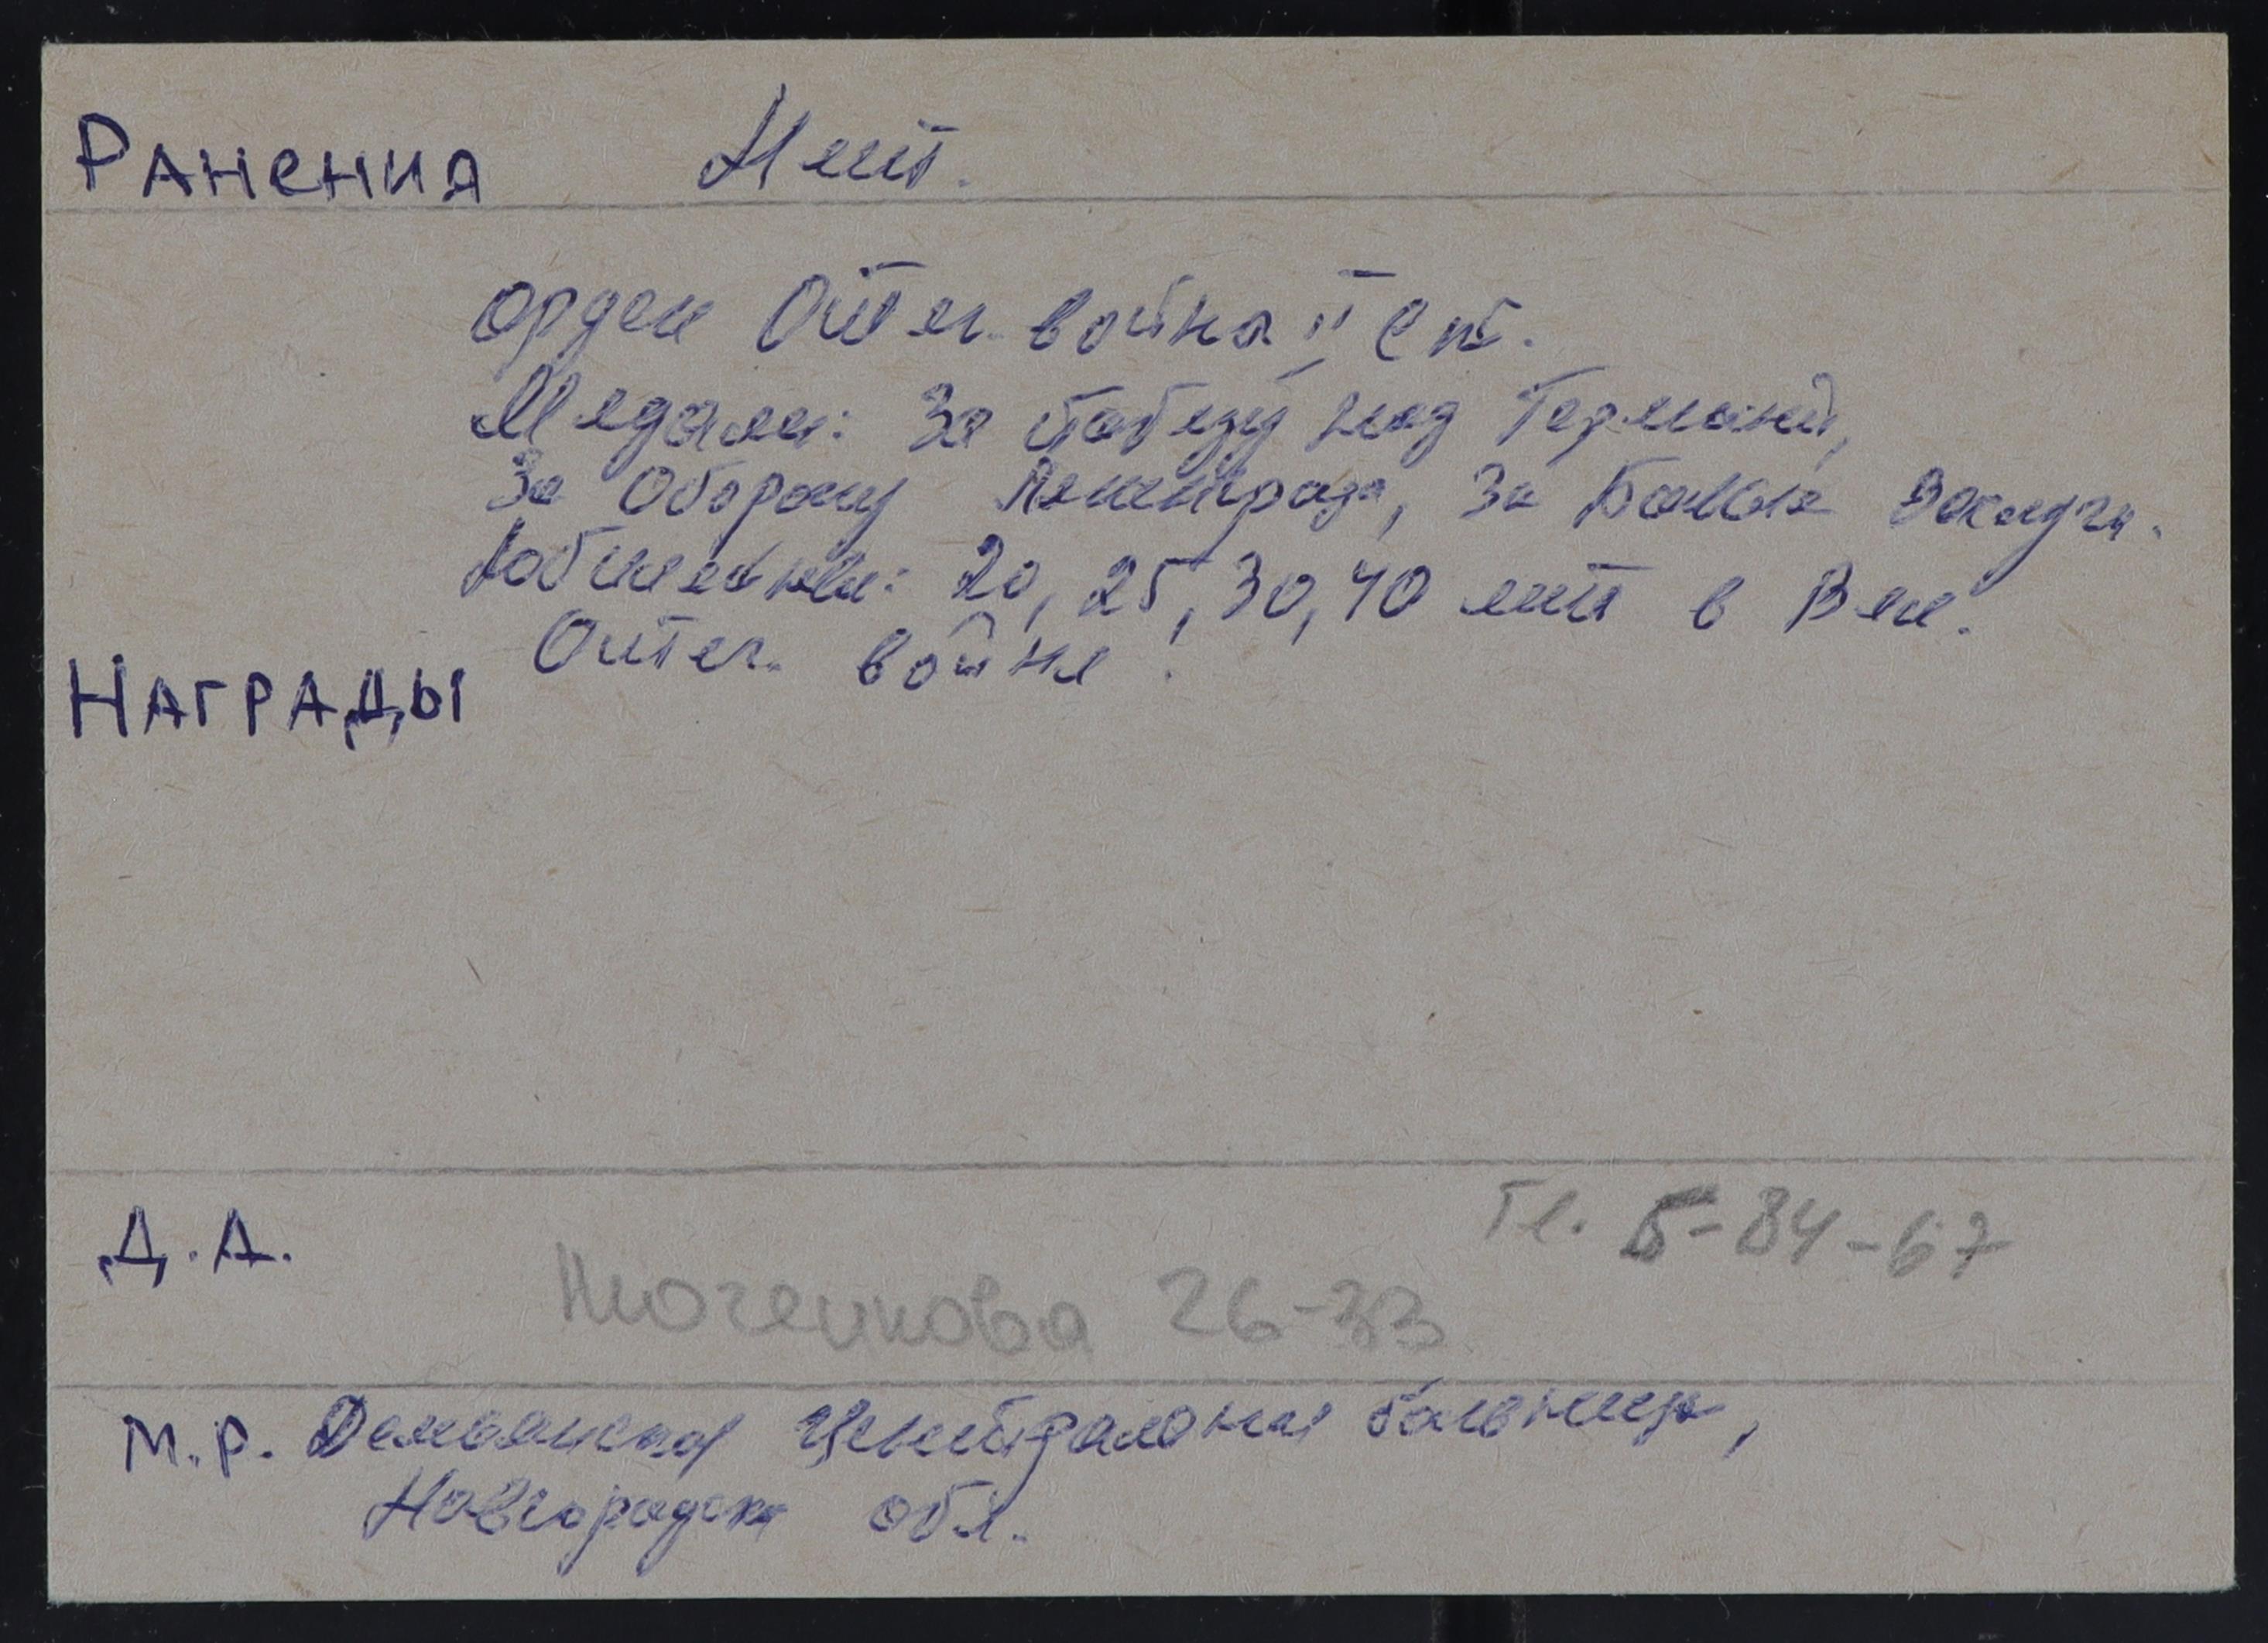 Ранения Нет.
орден Отеч. война II ст.
Медали: За Победу над Германи,
За Оборону Ленинграда, За Боевые Заслуги.
Юбилейные: 20, 25, 30, 40 лет в Вел.
Отеч. войне.
Награды
Д.А. Тл. 5-84-67
26-33
М.Р. Демьянская Центральная больница,
Новгородск обл.